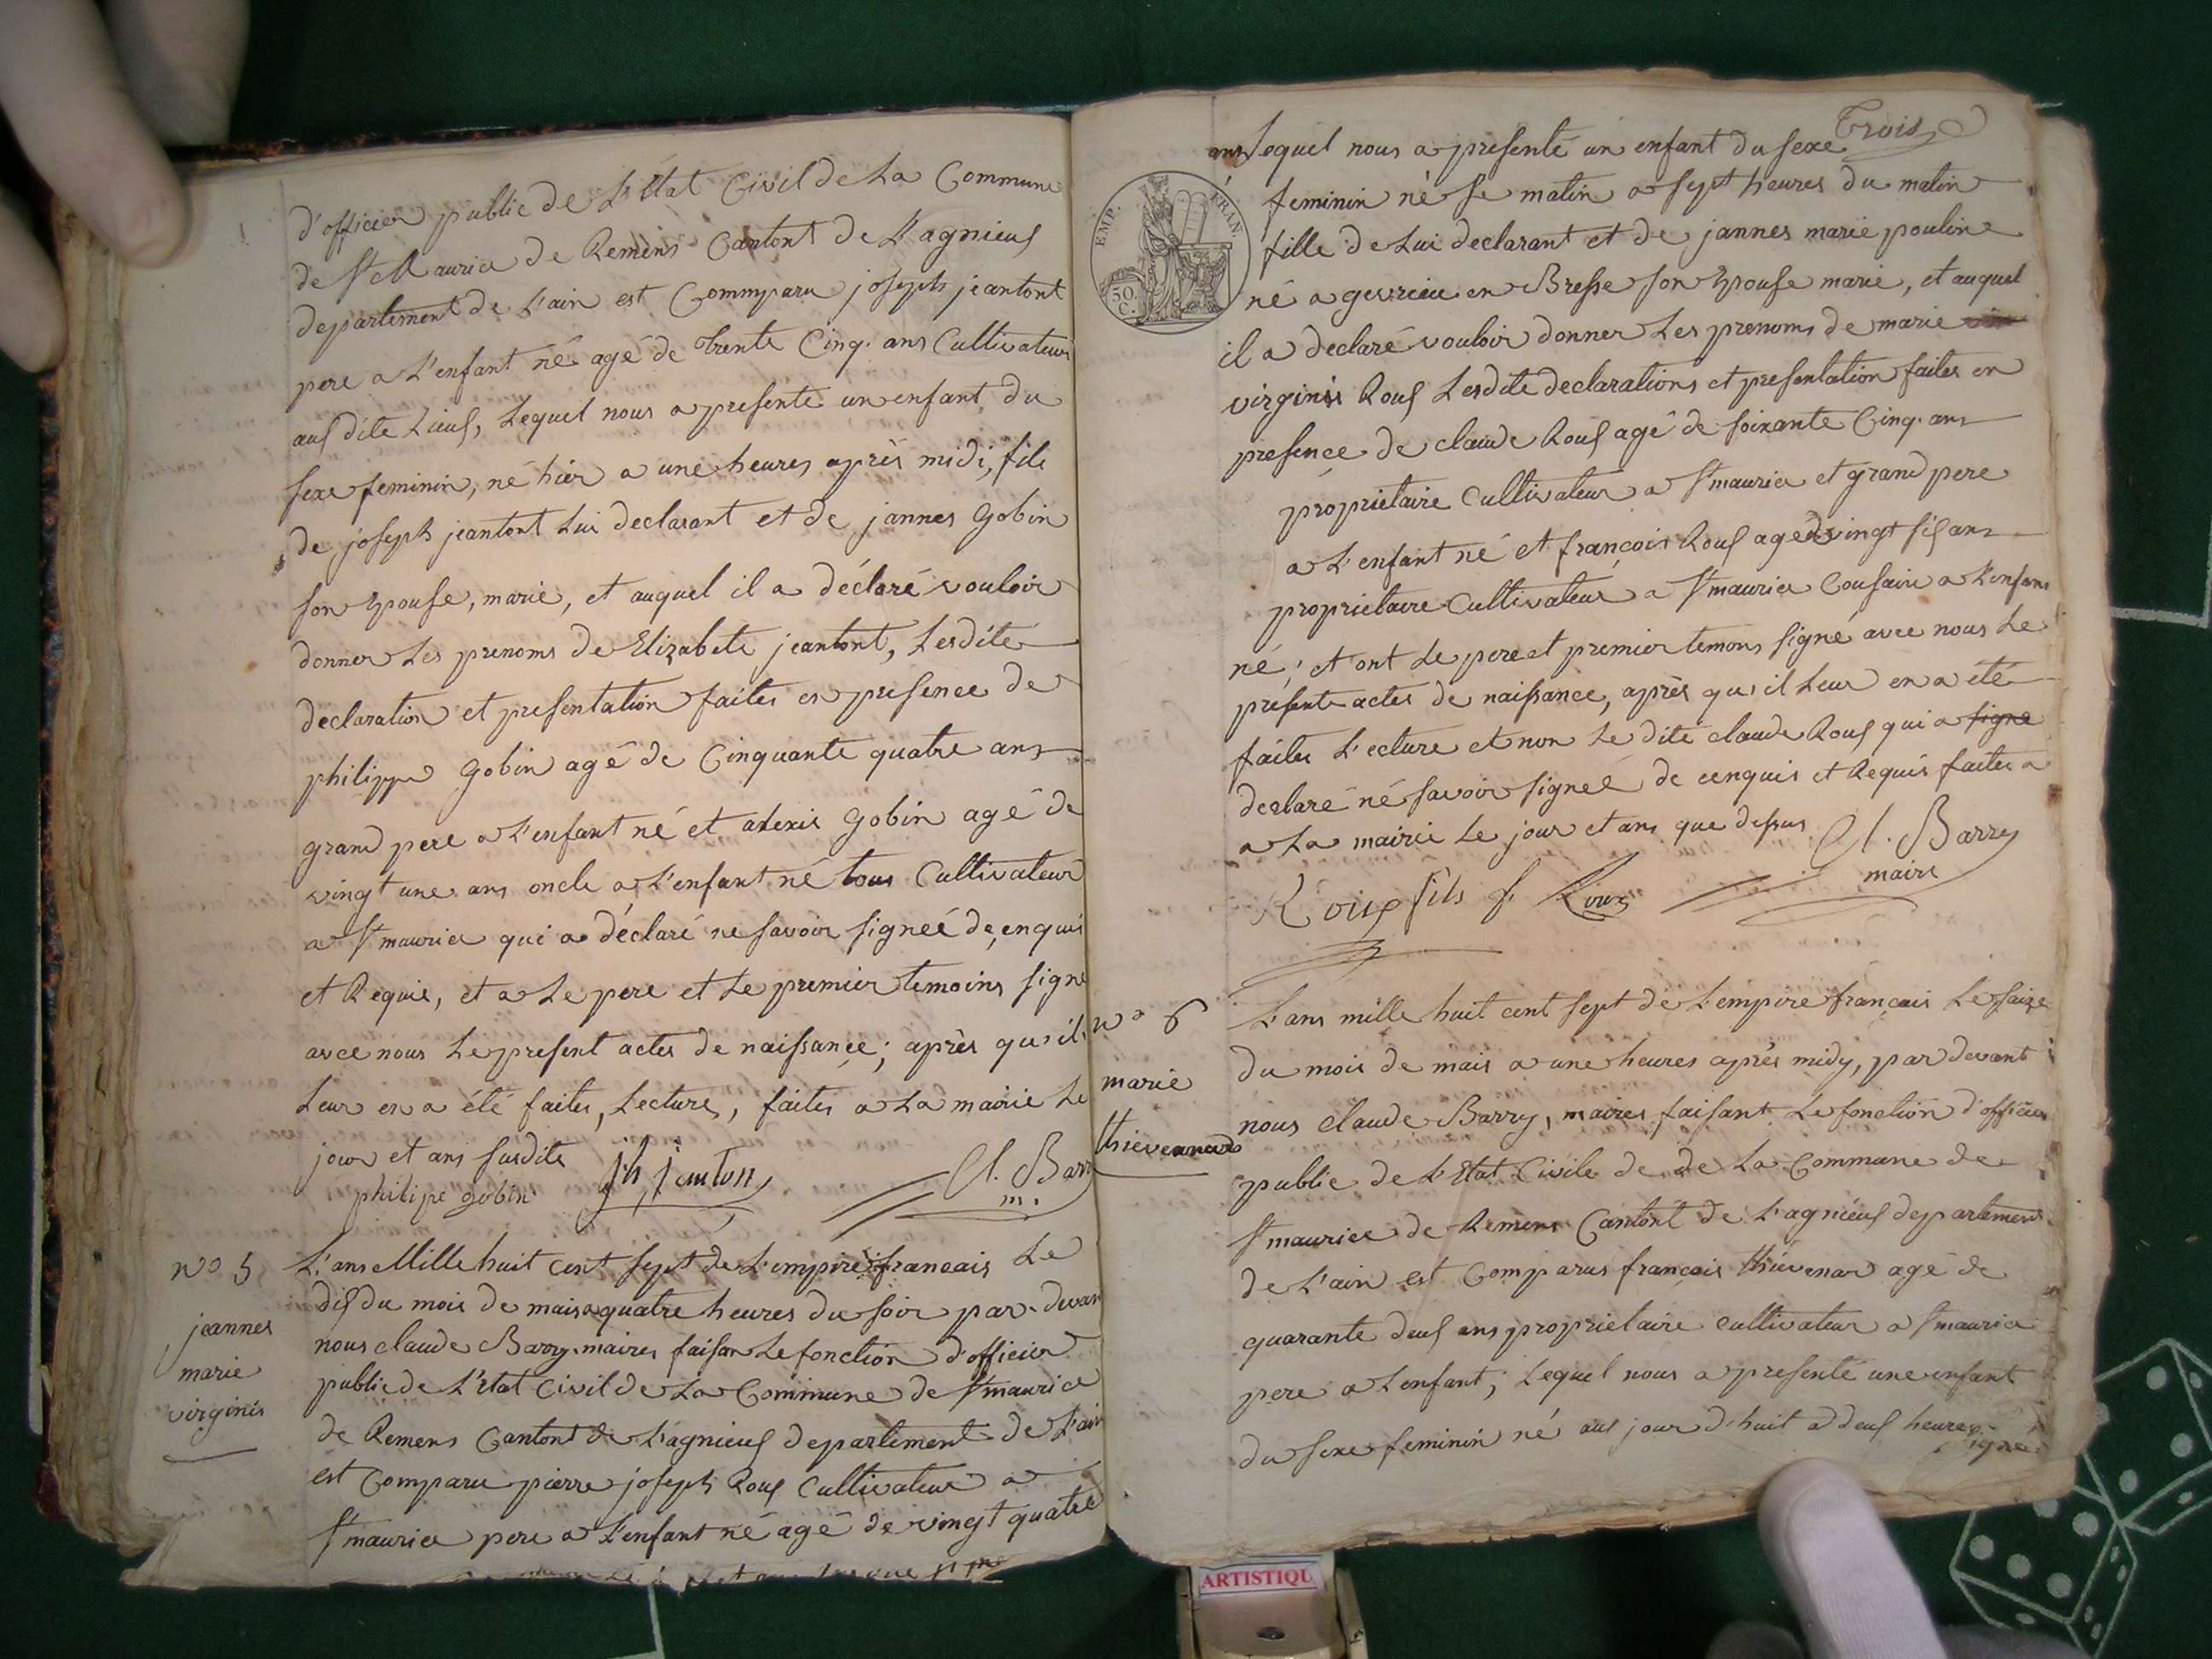 d'officier public de L'Etat Civil de La Commune
de St Maurice de Remens Cantont de L'agnieuf
departement de L'ain est Commparu joseph jeantont
pere a L'enfant né agé de Trente Cinq. ans Cultivateur
auf dite Lieuf, Lequel nous a presenté un enfant du
sexe feminin, né hier a une heures après midi, file
de joseph jeantont Lui declarant et de jannes Gobin
son Epouse, marié, et auquel il a déclaré vouloir
donner Les prenoms de Elizabete jeantont, Lesdite
declaration et presentation faites en presence de
philippe Gobin agé de Cinquante quatre ans
grand pere a L'enfant né et alexis Gobin agé de
vingt une ans oncle a L'enfant né tous Cultivateur
a St maurice qui a déclaré ne savoir signeé de, enquis
et Requis, et a Le pere et Le premier temoins signé
avec nous Le present actes de naissance; après qu'il
Leur en a été faites, Lecture, faites a La mairie Le
jour et ans susdite
philipe gobin jh jeanton Cl. Barr
m.
No 5
jeannes
marie
virginis
L'ans Mille huit cent sept de L'empire francais Le
dif du mois de mais a quatre heures du soir par devan
nous claude Barry maires faisan Le fonction d'officier
public de L'état Civil de La Commune de St maurice
de Remens Cantont de L'agnieuf departement de L'ain
est Comparu pierre joseph Rouf Cultivateur a
St maurice pere a L'enfant né agé de vingt quatre
Trois
ans Lequel nous a presenté un enfant du sexe
EMP. FRAN.
50. C.
feminin né se matin a sept heures du matin
fille de Lui declarant et de jannes marie pouline
né a gevrieu en Bresse son Epouse marié, et auquel
il a declaré vouloir donner Les prenoms de marie
virginis Rouf Lesdite declarations et presentation faites en
presence de claude Rouf agé de soixante Cinq. ans
proprietaire Cultivateur a St maurice et grand pere
a L'enfant né et françois Rouf age de vingt sif ans
proprietaire Cultivateur a St maurice Cousain a L'enfans
né; et ont Le pere et premier temons signé avec nous Le
présente actes de naissance, après qu'il Leur en a été
faites L'ecture et non Le dite claude Rouf qui a signe
declaré né savoir signeé de cenquis et Requis faites a
a La mairie Le jour et ans que dessus Cl. Barry
maire
Roux fils f. Roux
No 6
marie
thievenard
L'ans mille huit cent sept de L'empire français Le saize
du mois de mais a une heures après midy, par devant
nous claude Barry, maires faisant Le fonction d'officier
public de L'Etat Civile de de La Commune de
St maurice de Remens Cantont de L'agnieuf departement
de L'ain est Comparus françois thievenar agé de
quarante deuf ans proprietaire cultivateur a St maurice
pere a L'enfant; Lequel nous a presenté une enfant
du sexe feminin né auf jour d'huit a deuf heures
signé
ARTISTIQU